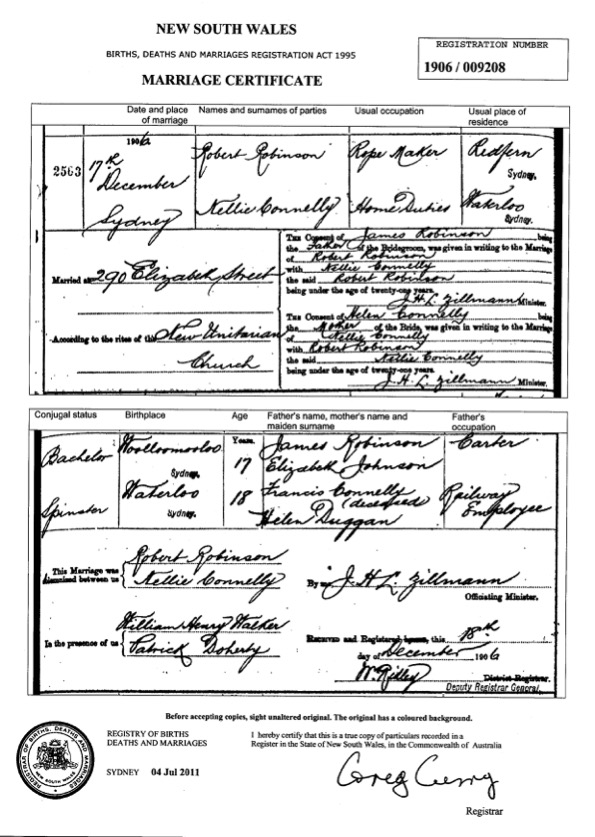 NEW SOUTH WALES
BIRTHS, DEATHS AND MARRIAGES REGISTRATION ACT 1995
MARRIAGE CERTIFICATE
REGISTRATION NUMBER
1906 / 009208
Date and place of marriage
Names and surnames of parties
Usual occupation
Usual place of residence
2563
1906
17th
December
Sydney
Robert Robinson
Rope Maker
Redfern
Sydney.
Nellie Connelly
Home Duties
Waterloo
Sydney.
Married at 290 Elizabeth Street
According to the rites of the New Unitarian
Church
THE Consent of James Robinson being
the Father of the Bridegroom, was given in writing to the Marriage
of Robert Robinson
with Nellie Connelly
the said Robert Robinson
being under the age of twenty-one years.
J.H.L. Zillmann Minister.
THE Consent of Helen Connelly being
the Mother of the Bride, was given in writing to the Marriage
of Nellie Connelly
with Robert Robinson
the said Nellie Connelly
being under the age of twenty-one years.
J.H.L. Zillmann Minister.
Conjugal status
Birthplace
Age
Father's name, mother's name and maiden surname
Father's occupation
Bachelor
Woolloomooloo
Sydney.
Years.
17
James Robinson
Elizabeth Johnson
Carter
Spinster
Waterloo
Sydney.
18
Francis Connelly
(deceased)
Helen Duggan
Railway
Employee
This Marriage was
solemnized between us
Robert Robinson
Nellie Connelly
By me J.H.L. Zillmann
Officiating Minister.
In the presence of us
William Henry Walker
Patrick Doherty
RECEIVED and Registered by me, this 18th
day of December 1906
W. Ridley
District Registrar.
Deputy Registrar General.
Before accepting copies, sight unaltered original. The original has a coloured background.
REGISTRY OF BIRTHS
DEATHS AND MARRIAGES
SYDNEY 04 Jul 2011
I hereby certify that this is a true copy of particulars recorded in a
Register in the State of New South Wales, in the Commonwealth of Australia
Greg Curry
Registrar
REGISTRAR OF BIRTHS, DEATHS AND MARRIAGES
NEW SOUTH WALES